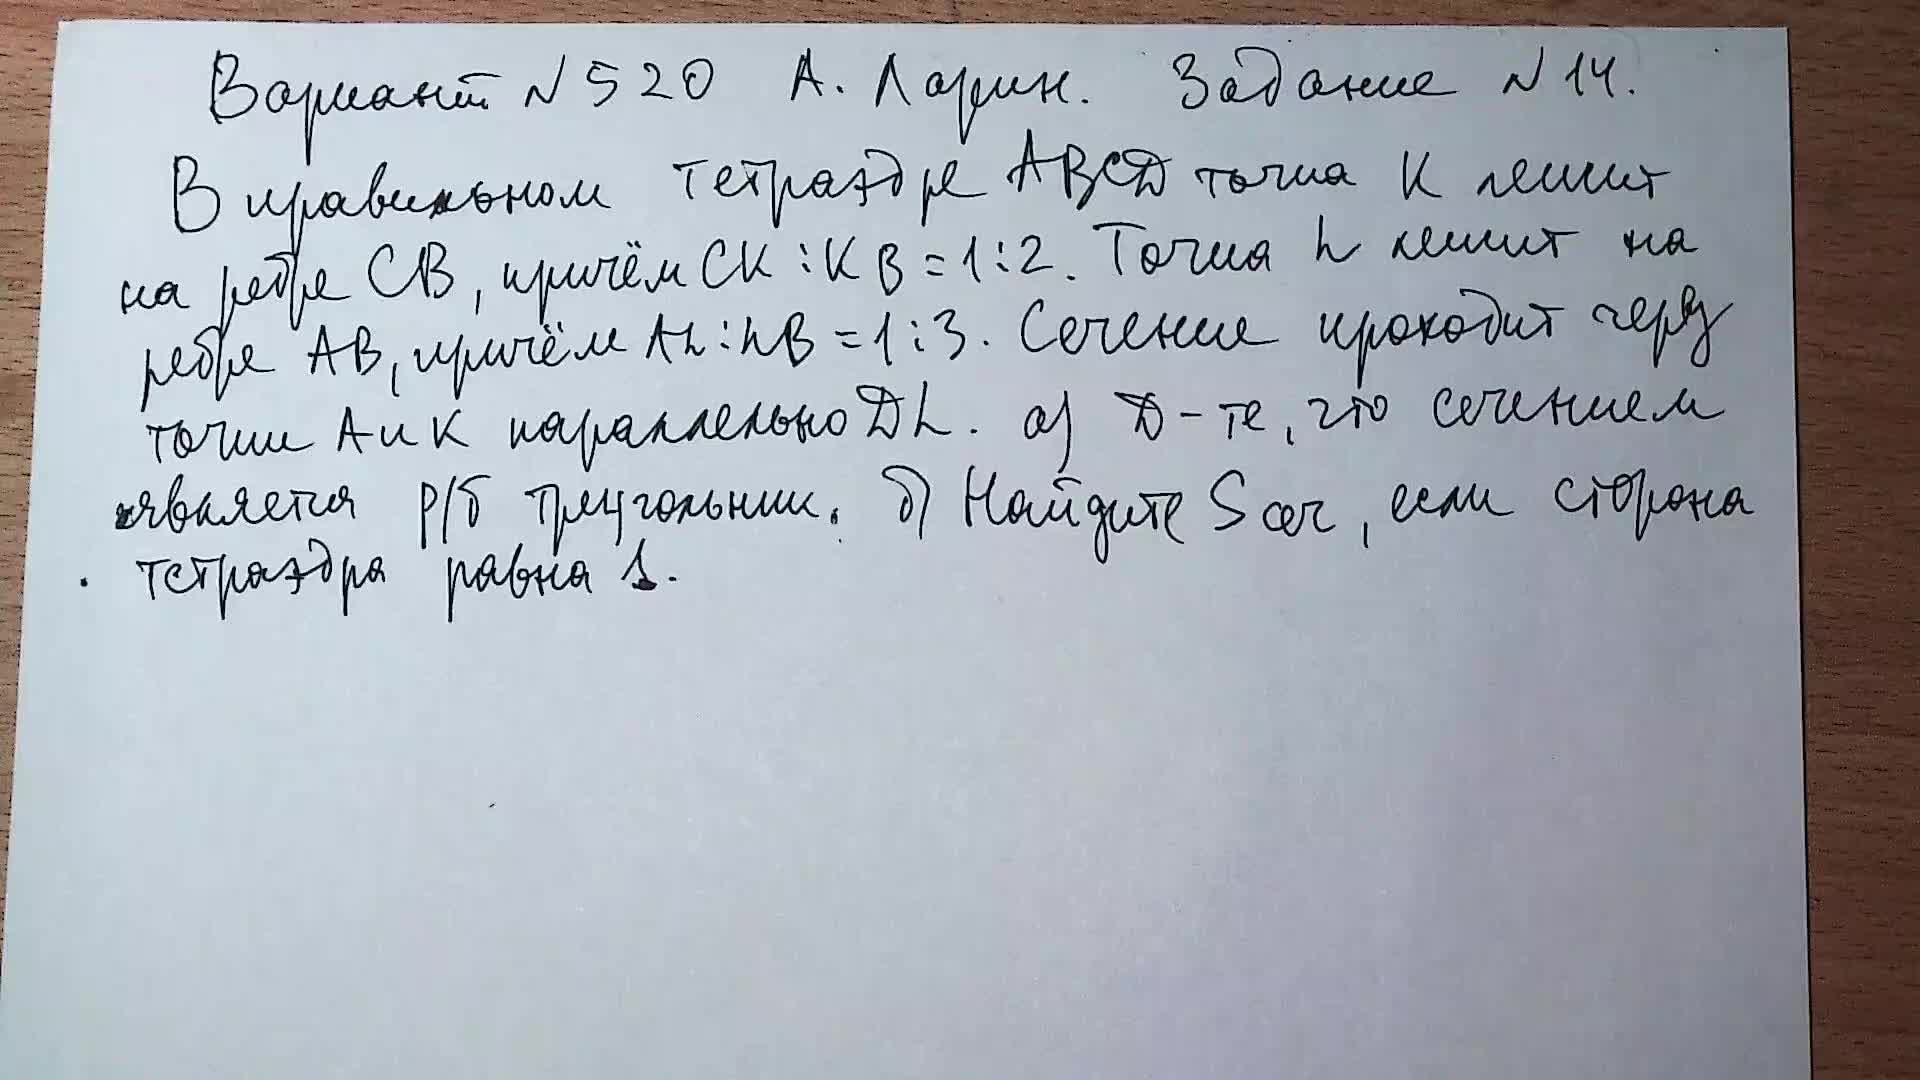 Вариант N 520 А. Ларин. Задание N 14.
В правильном тетраэдре ABCD точка К лежит
на ребре СВ, причём СК : КВ = 1 : 2. Точка L лежит на
ребре АВ, причём AL : LB = 1 : 3. Сечение проходит через
точки А и К параллельно DL. а) Д-те, что сечением
является р/б треугольник. б) Найдите S сеч, если сторона
тетраэдра равна 1.